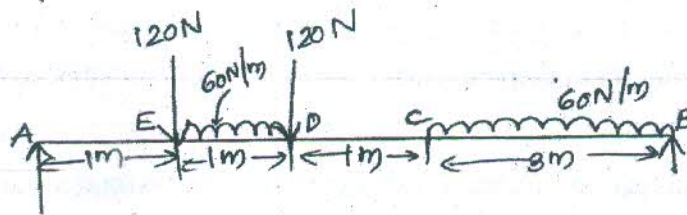 120N 120N
60N/m 60N/m
A E D C B
1m 1m 1m 3m